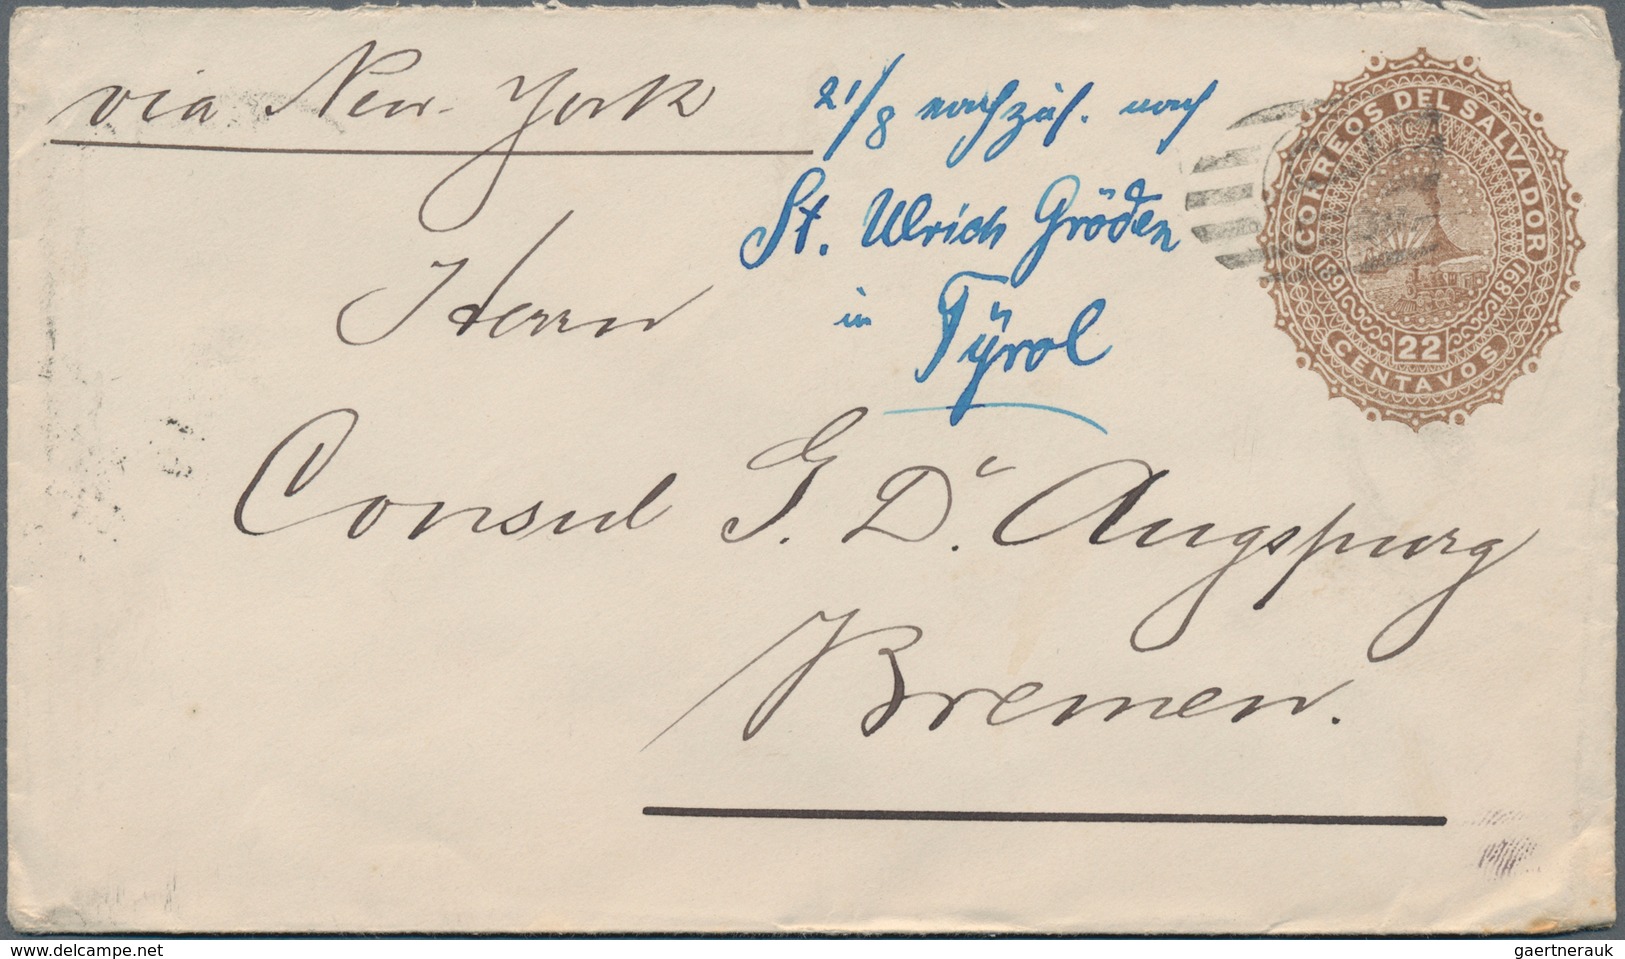 via New-York
21/8 nachzus. nach
St. Ulrich Gröden
in Tÿrol
Herrn
Consul G. D. Augspurg
Bremen.
CORREOS DEL SALVADOR
1891 1891
22
CENTAVOS
www.delcampe.net
gaertnerauk